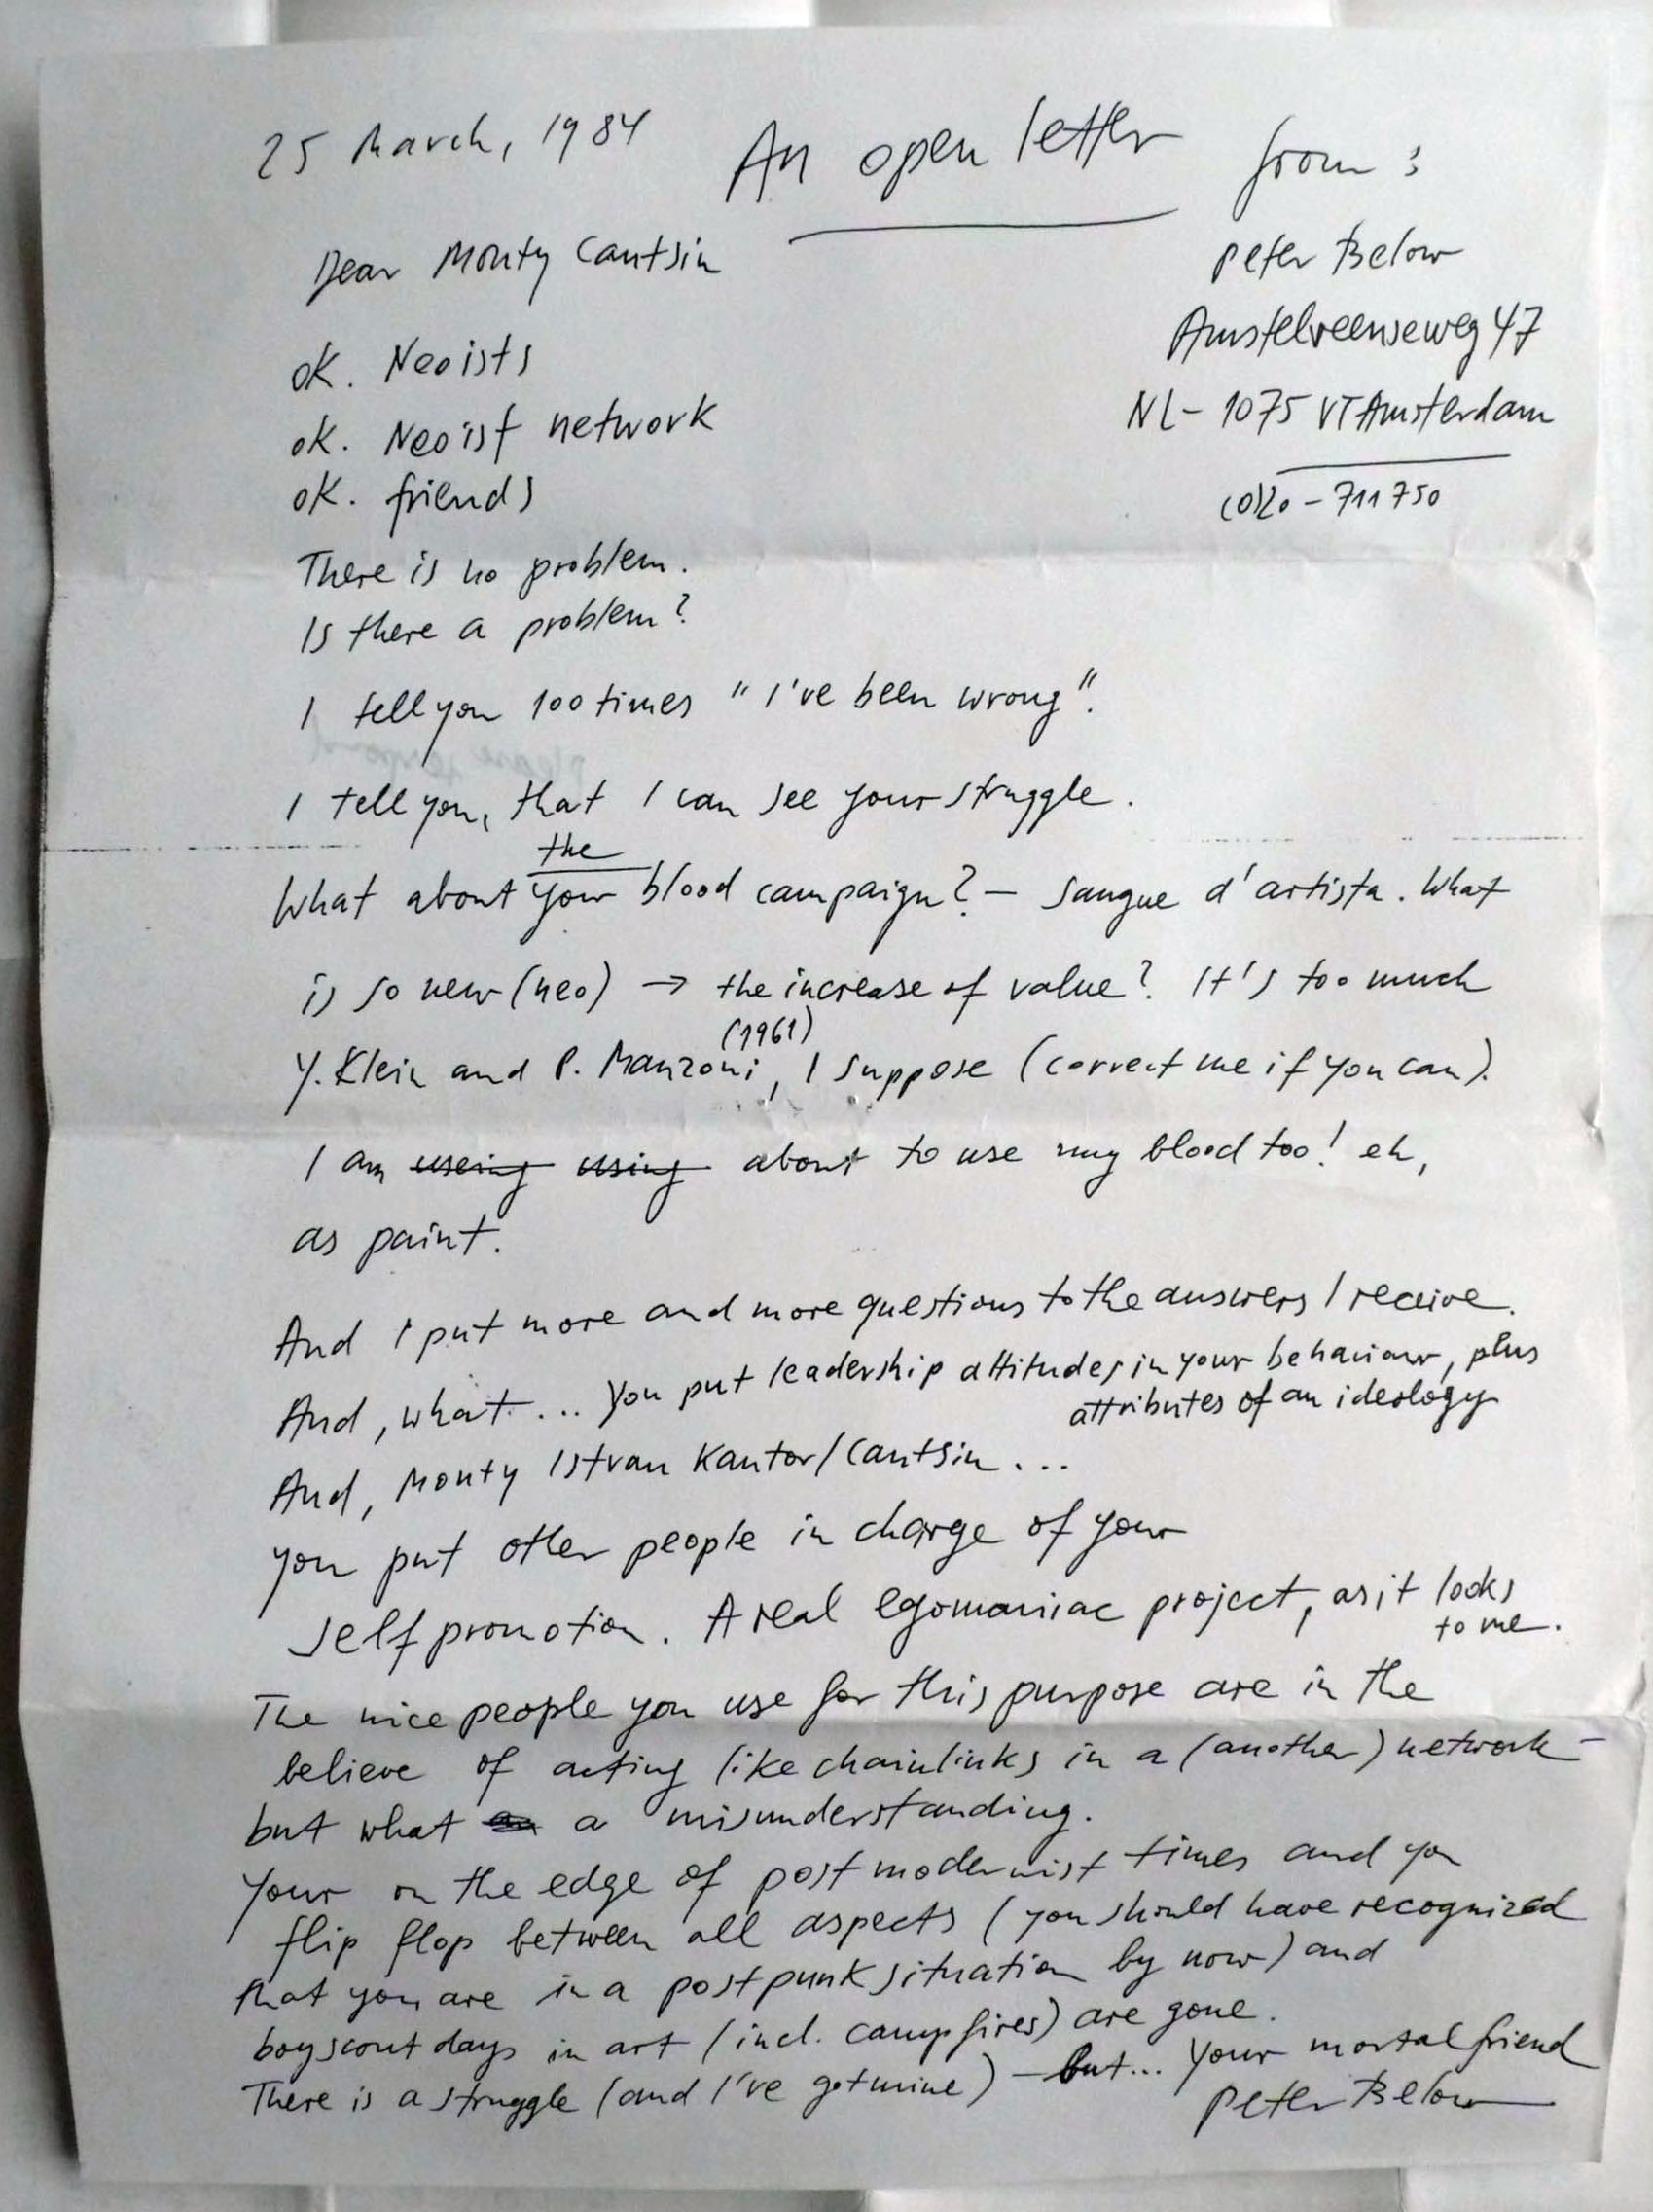 25 March, 1984
An open letter
from:
Peter Below
Amstelveenseweg 47
NL- 1075 VT Amsterdam
(0)20 - 711 750
Dear Monty Cantsin
OK. Neoists
OK. Neoist network
OK. friends
There is no problem.
Is there a problem?
I tell you 100 times "I've been wrong".
I tell you, that I can see your struggle.
the
What about your blood campaign? — Sangue d'artista. What
is so new (neo) → the increase of value? It's too much
(1961)
Y. Klein and P. Manzoni, I suppose (correct me if you can).
I am useing using about to use my blood too! eh,
as paint.
And I put more and more questions to the answers I receive.
And, what... You put leadership attitudes in your behaviour, plus
attributes of an ideology
And, Monty Istvan Kantor/Cantsin...
you put other people in charge of your
self promotion. A real egomaniac project, as it looks
to me.
The nice people you use for this purpose are in the
believe of acting like chainlinks in a (another) network -
but what a misunderstanding.
Your on the edge of postmodernist times and you
flip flop between all aspects (you should have recognized
that you are in a postpunk situation by now) and
boyscout days in art (incl. campfires) are gone.
There is a struggle (and I've got mine) — but... Your mortal friend
Peter Below